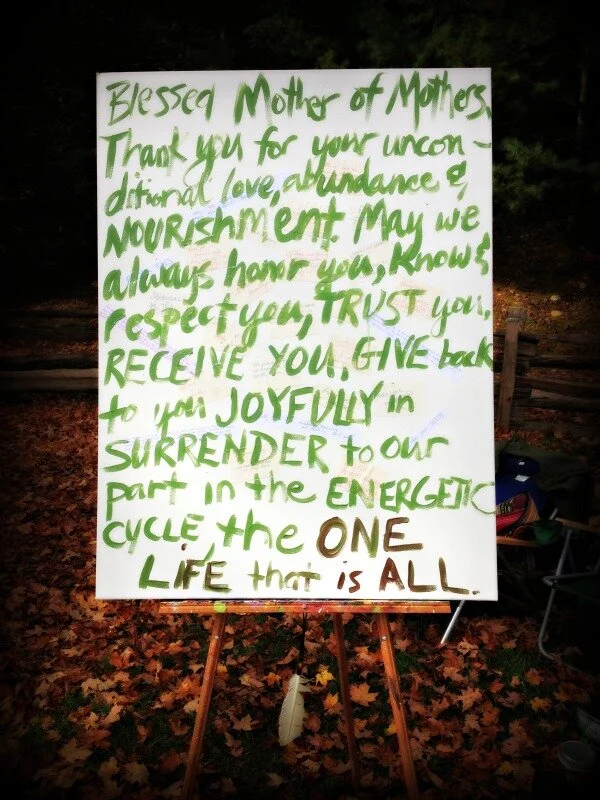 Blessed Mother of Mothers,
Thank you for your uncon-
ditional love, abundance &
NOURISHMENT. May we
always honor you, Know &
respect you, TRUST you,
RECEIVE YOU, GIVE back
to you JOYFULLY in
SURRENDER to our
part in the ENERGETIC
CYCLE, the ONE
LIFE that is ALL.